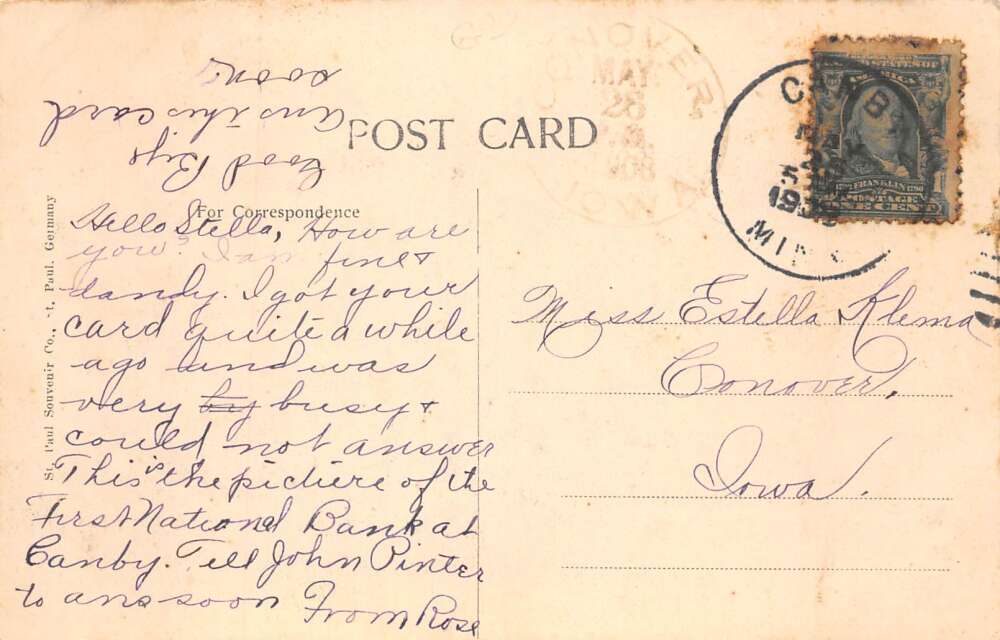 POST CARD
For Correspondence
Hello Stella, How are
you? I am fine &
dandy. I got your
card quite a while
ago and was
very by busy &
could not answer
This is the picture of the
First National Bank at
Canby. Tell John Pinter
to ans soon From Rose
Good Bye
ans this card
soon
Miss Estella Klema
Conover,
Iowa.
St. Paul Souvenir Co., St. Paul. Germany
CANBY
MINN
AMERICA
FRANKLIN
POSTAGE
ONE CENT
MAY